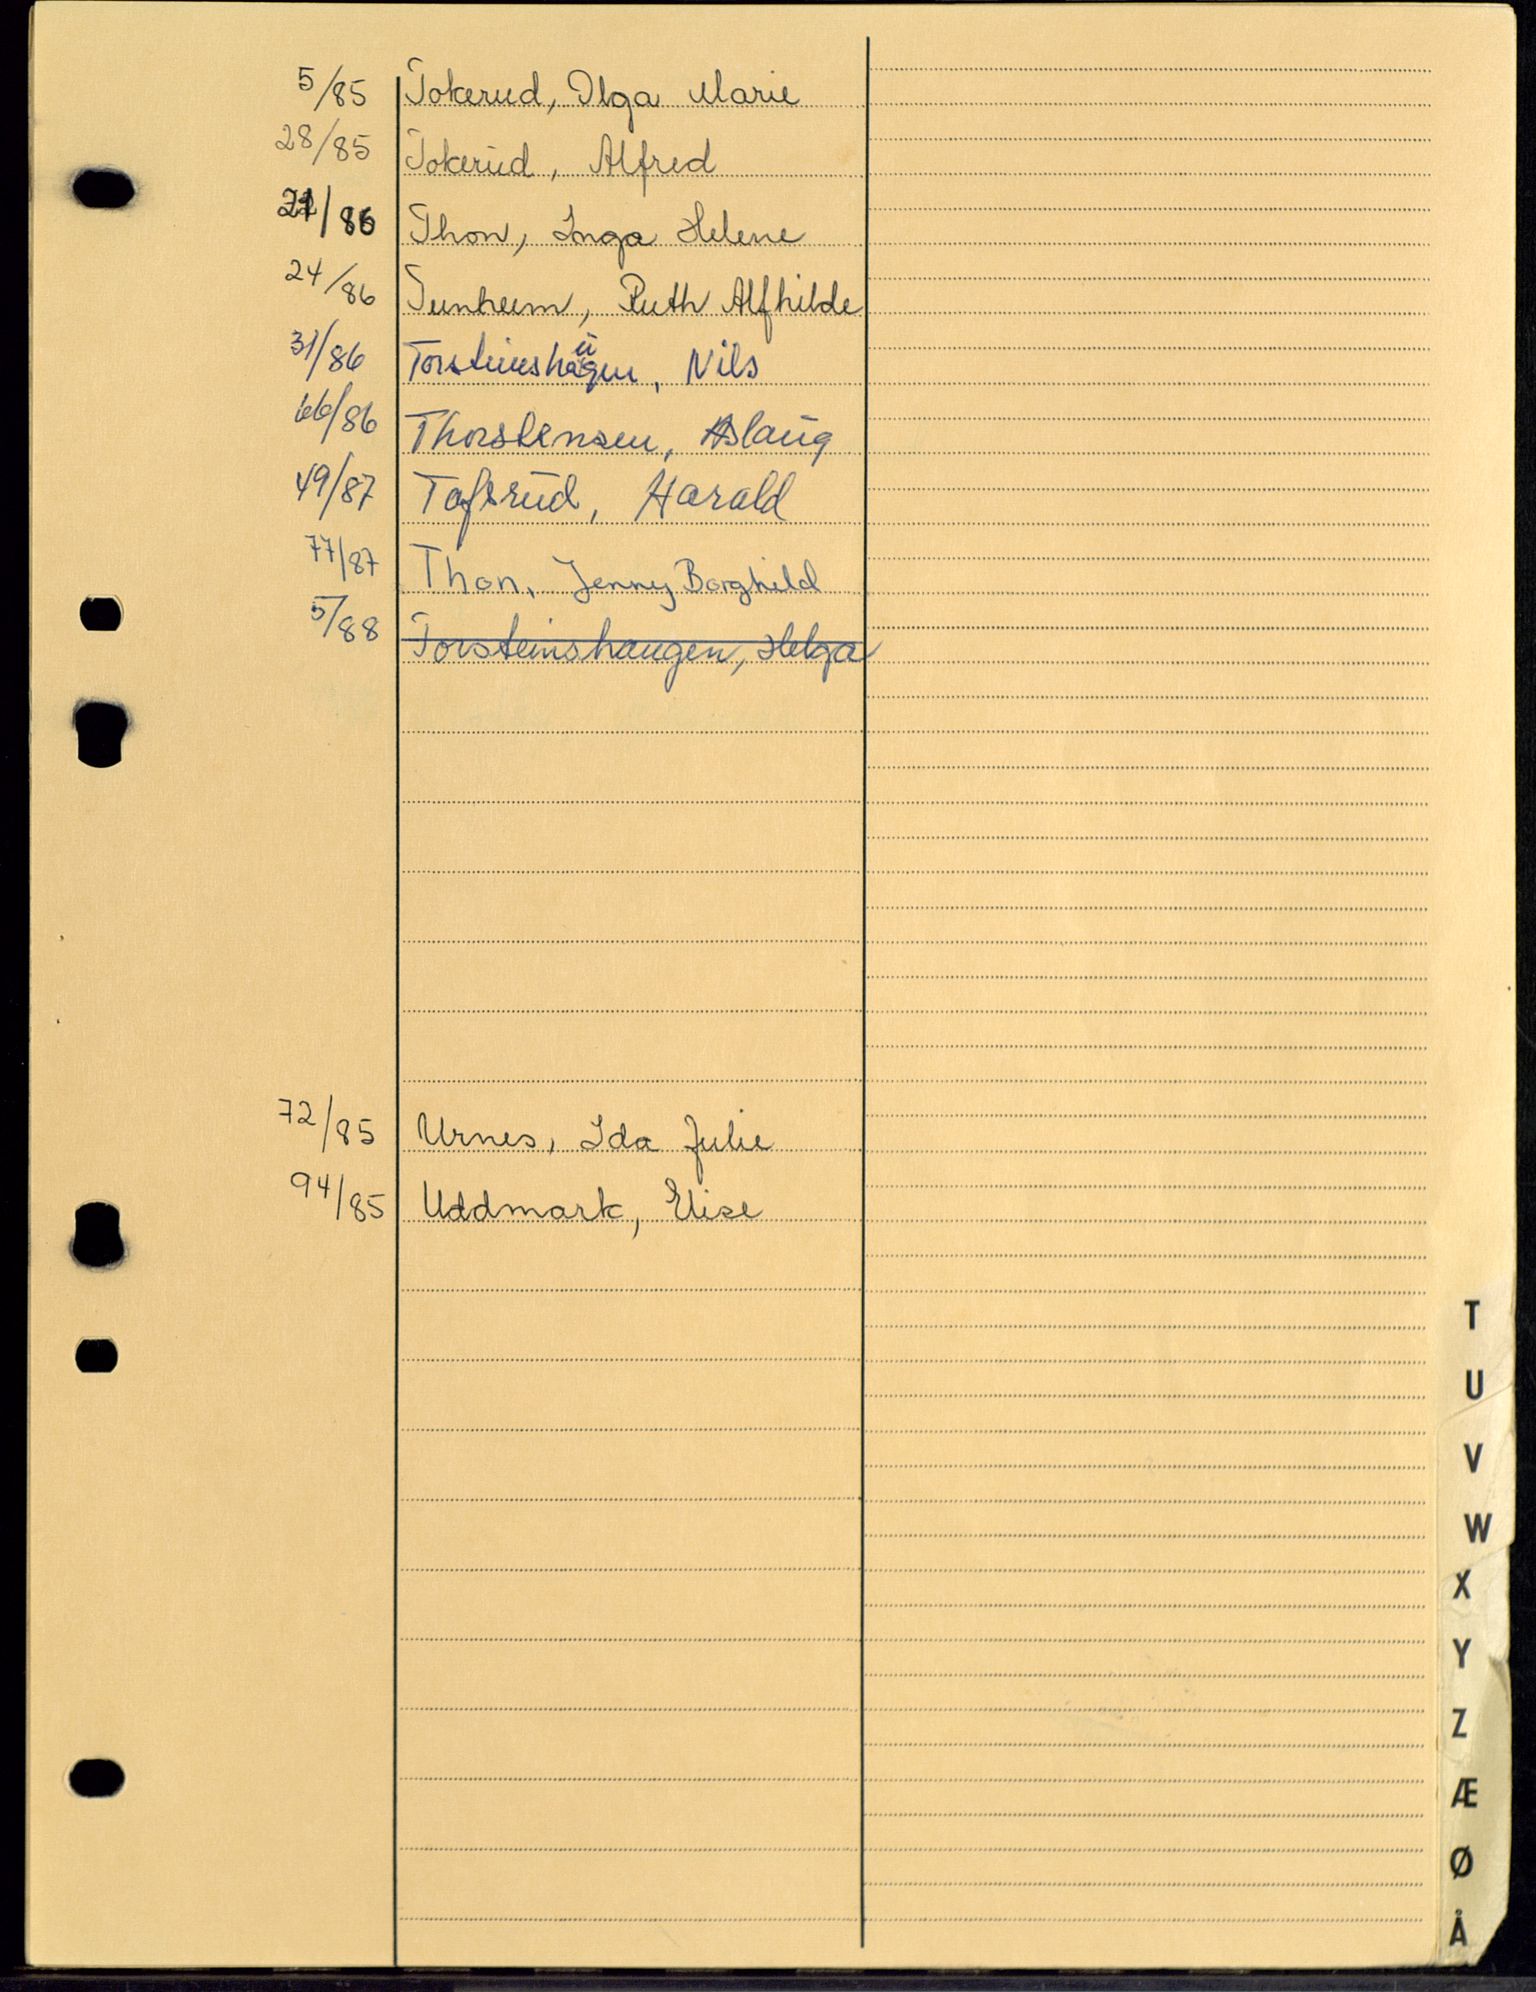 5/85 Tokerud, Olga Marie
28/85 Tokerud, Alfred
21/86 Thon, Inga Helene
24/86 Tunheim, Ruth Alfhilde
31/86 Torsteinshaugen, Nils
66/86 Thorstensen, Aslaug
49/87 Tafsrud, Harald
77/87 Thon, Jenny Borghild
5/88 Torsteinshaugen, Helga
72/85 Urnes, Ida Julie
94/85 Uddmark, Elise
T
U
V
W
X
Y
Z
Æ
Ø
Å